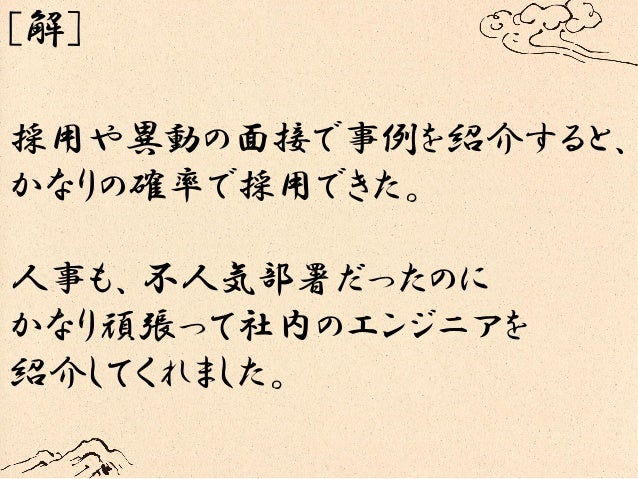 [解]
採用や異動の面接で事例を紹介すると、
かなりの確率で採用できた。
人事も、不人気部署だったのに
かなり頑張って社内のエンジニアを
紹介してくれました。